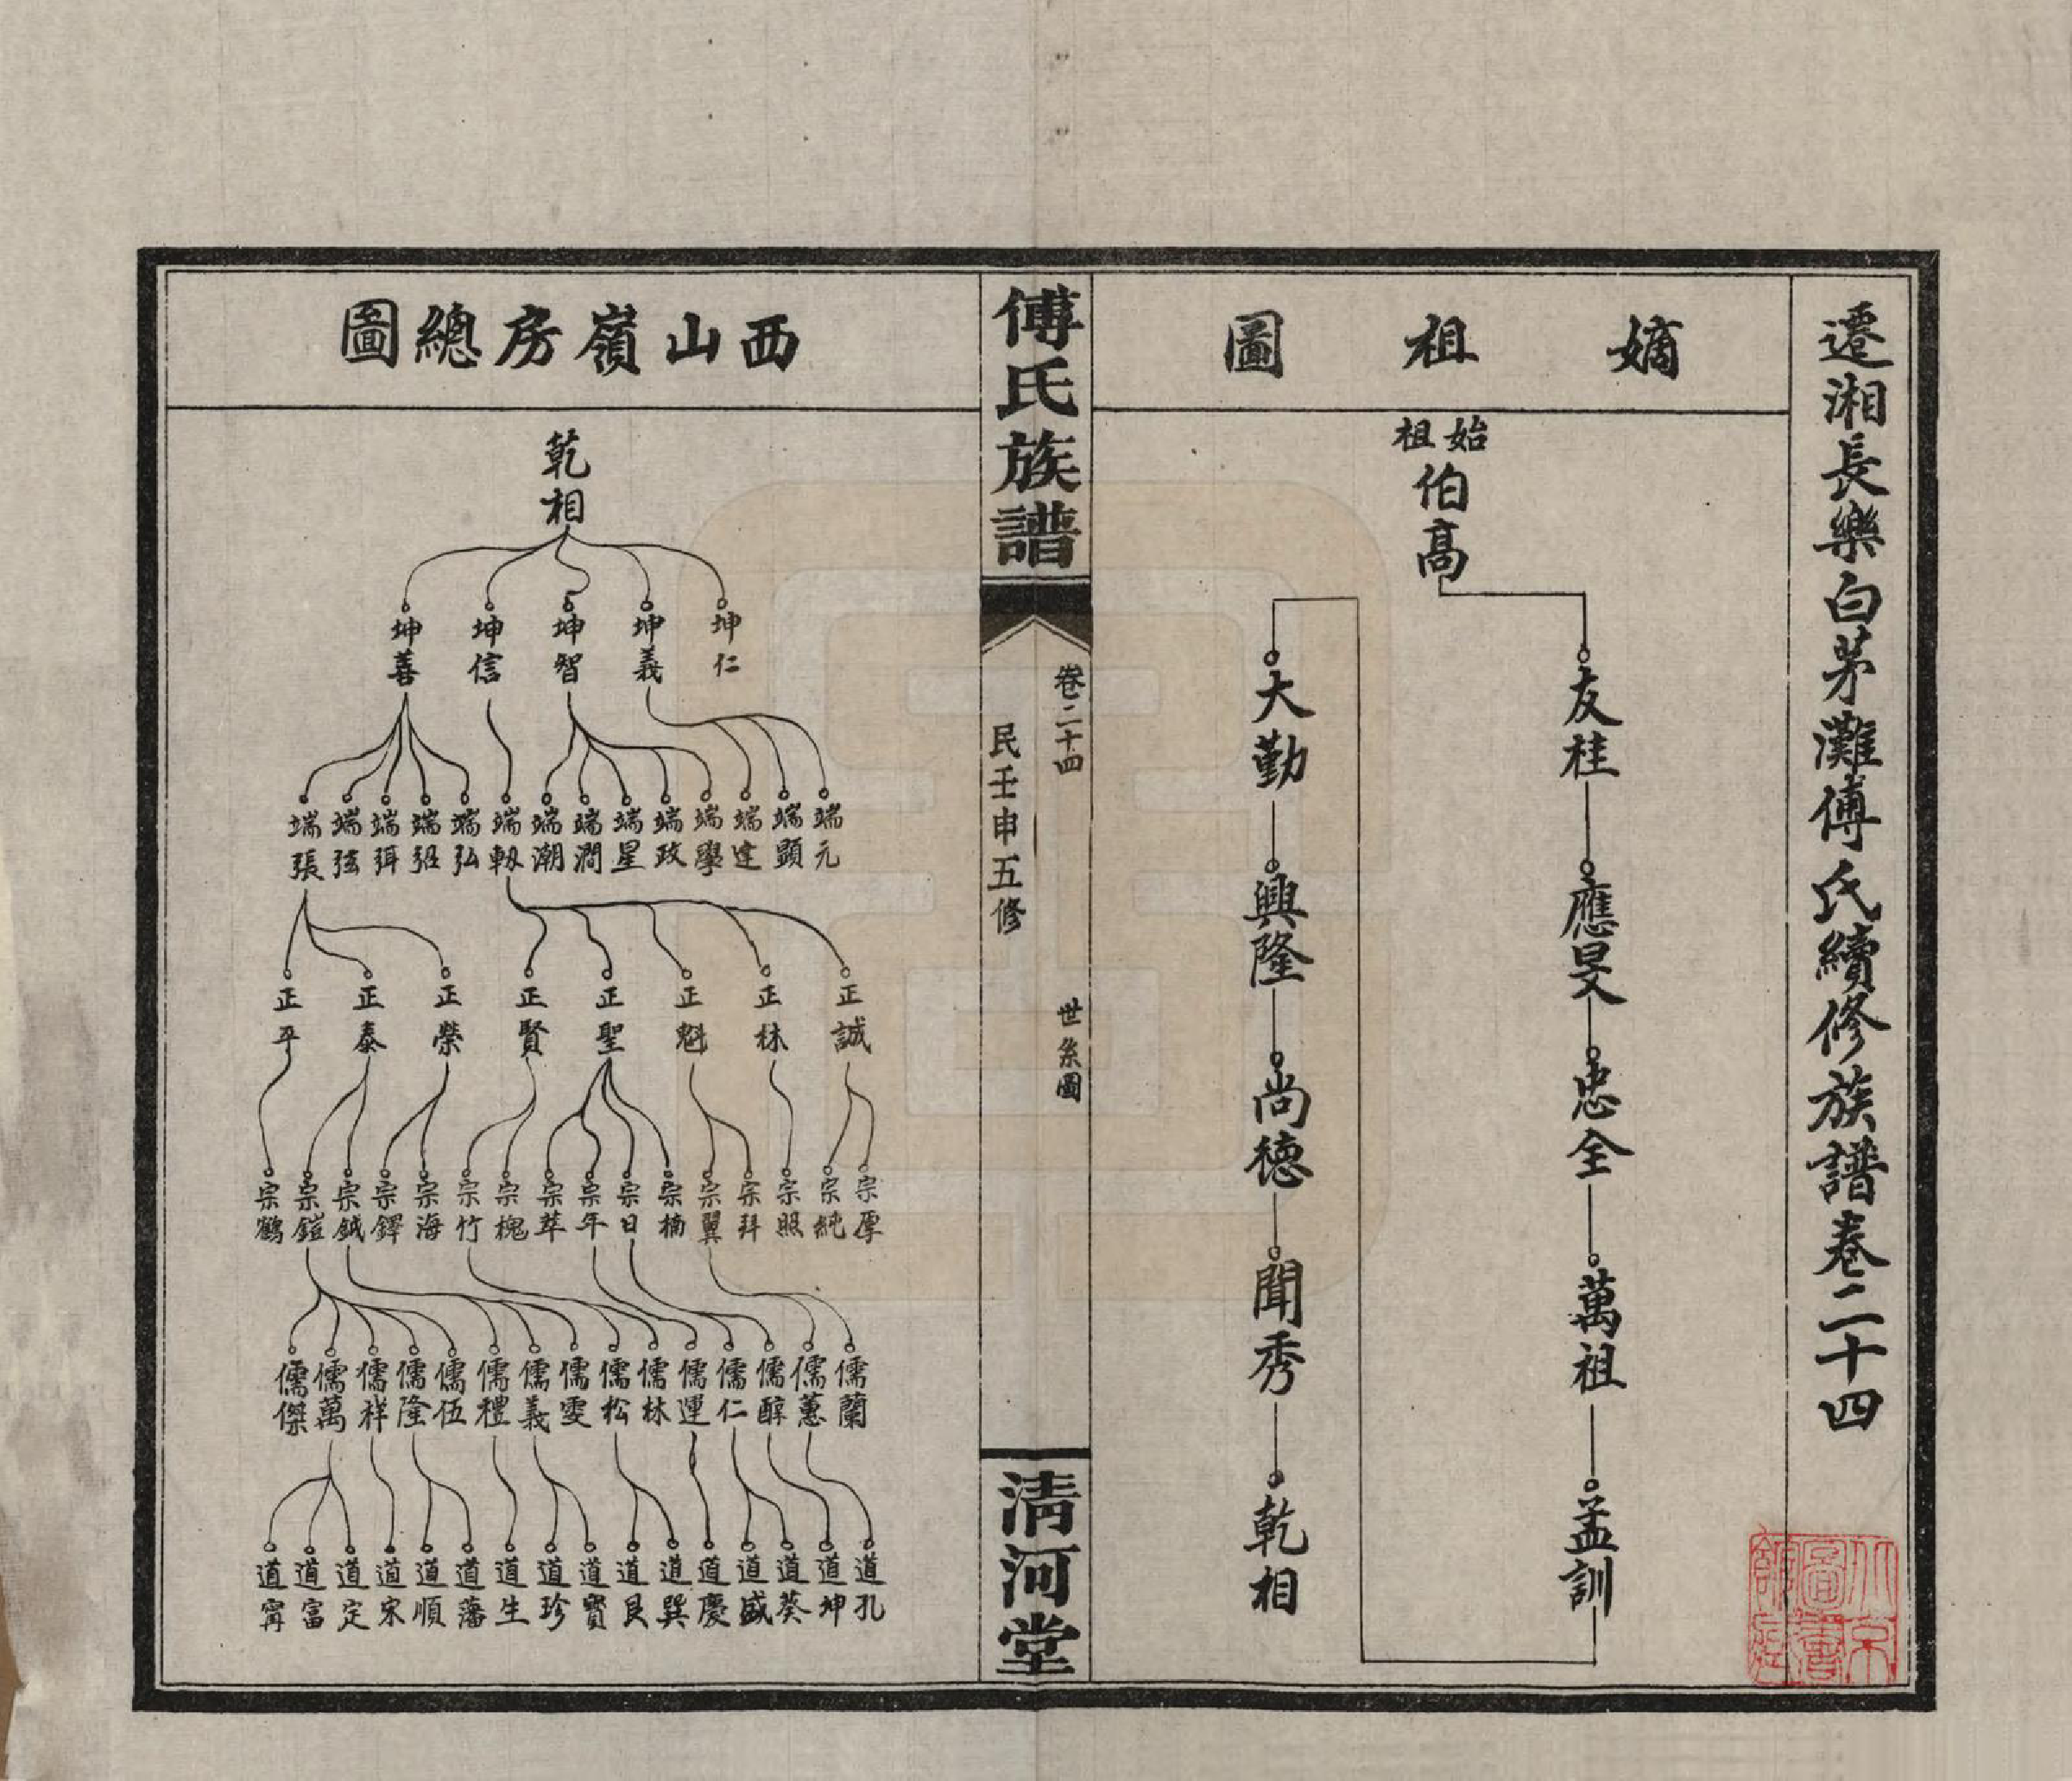 遷湘長樂白茅灘傅氏續修族譜卷二十四
嫡祖圖
始祖
伯高
友桂
應旻
忠全
萬祖
孟訓
大勤
興隆
尚德
聞秀
乾相
傅氏族譜
卷二十四
世系圖
民壬申五修
清河堂
西山嶺房總圖
乾相
坤仁 坤義 坤智 坤信 坤善
端元 端顕 端達 端學 端政 端星 端潤 端潮 端軔 端弘 端弨 端弭 端弦 端張
正誠 正林 正魁 正聖 正賢 正榮 正泰 正平
宗厚 宗純 宗照 宗拜 宗翼 宗楠 宗日 宗年 宗萃 宗槐 宗竹 宗海 宗鐸 宗鉞 宗鎧 宗鶴
儒蘭 儒蕙 儒醇 儒仁 儒運 儒林 儒松 儒雯 儒義 儒禮 儒伍 儒隆 儒祥 儒萬 儒傑
道孔 道坤 道葵 道盛 道慶 道巽 道艮 道寶 道珍 道生 道藩 道順 道宋 道定 道富 道甯
北京圖書館藏